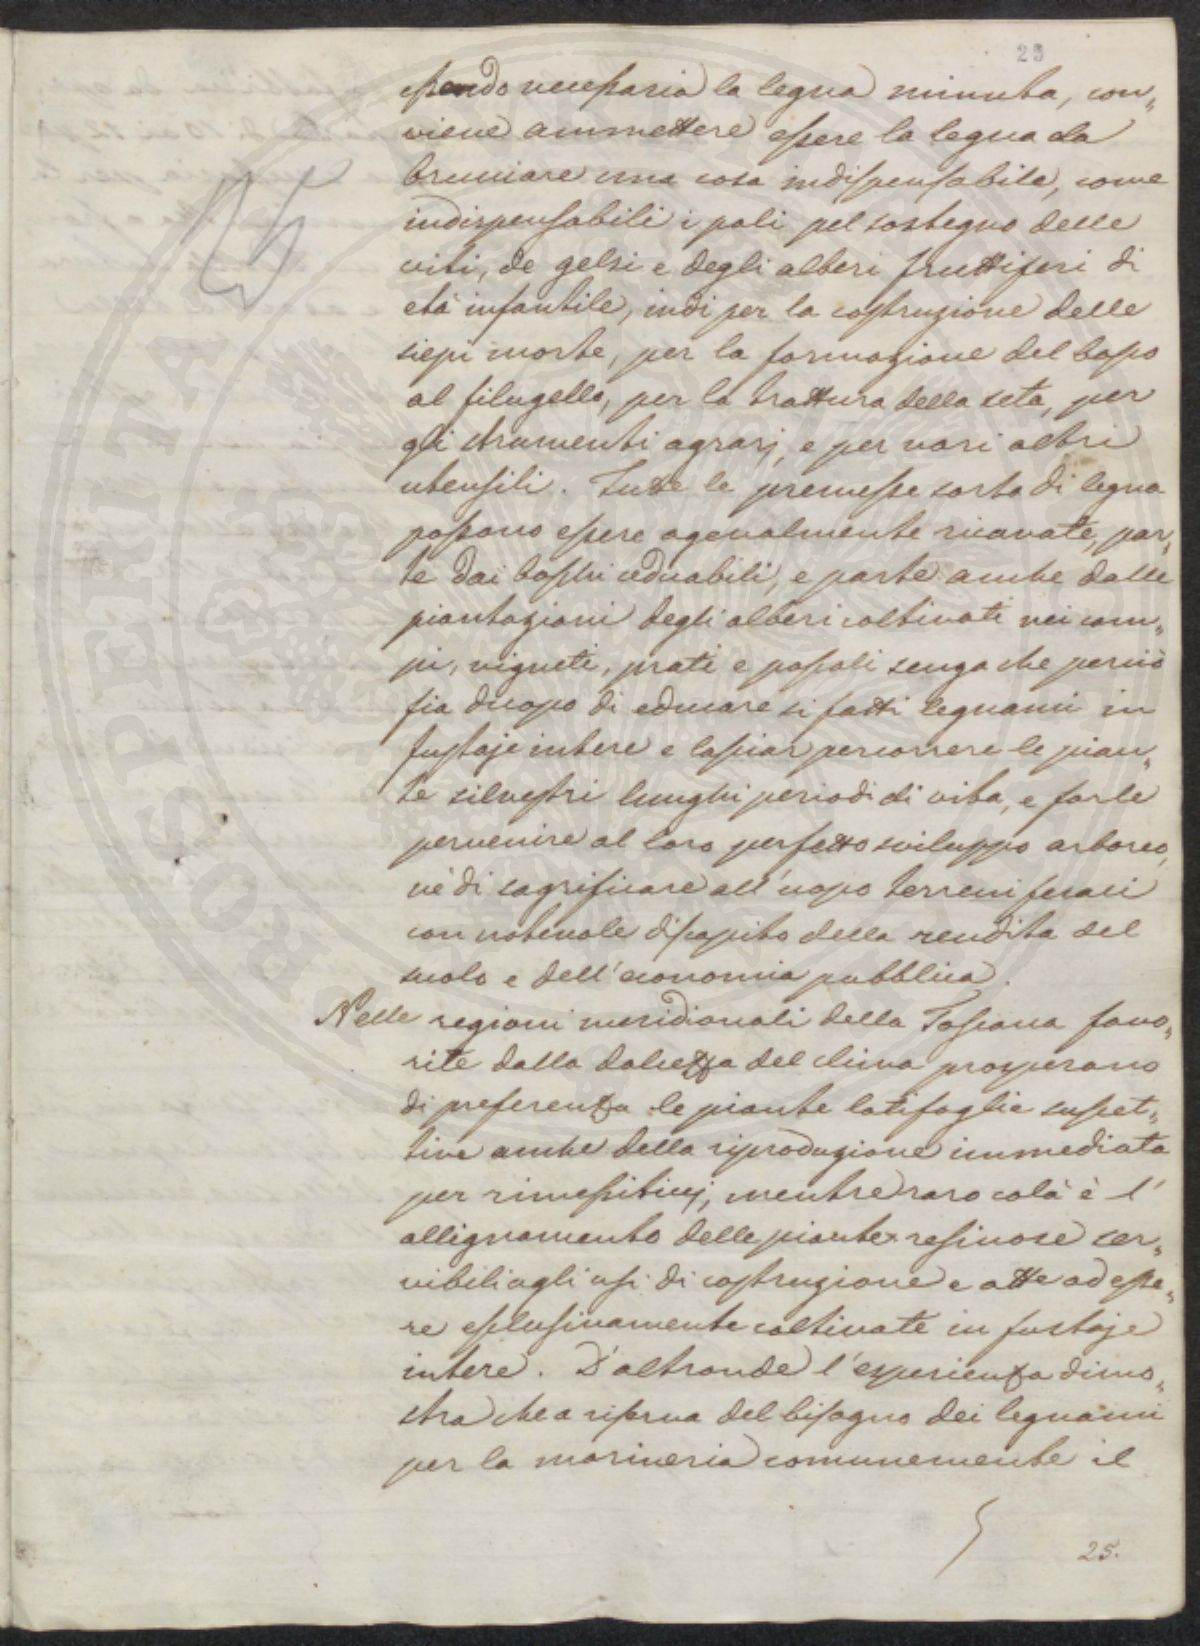 29
essendo necessaria la legna minuta, con„
viene ammettere essere la legna da
bruciare una cosa indispensabile, come
indispensabili i pali pel sostegno delle
viti, de gelsi e degli alberi fruttiferi di
età infantile, indi per la costruzione delle
siepi morte, per la formazione del bosco
al filugello, per la trattura della seta, per
gli strumenti agrarj, e per vari altri
utensili. Tutte le premesse sorta di legna
possono essere agevolmente ricavate, par„
te dai boschi ceduabili, e parte anche dalle
piantagioni degli alberi coltivati nei cam„
pi, vigneti, prati e pascoli senza che perciò
sia duopo di educare si fatti legnami in
fustaje intere e lasciar percorrere le pian„
te silvestri lunghi periodi di vita, e farle
pervenire al loro perfetto sviluppo arboreo,
nè di sagrificare all'uopo terreni feraci
con notevole discapito della rendita del
suolo e dell'economia pubblica.
Nelle regioni meridionali della Toscana favo„
rite dalla dolcezza del clima prosperano
di preferenza le piante latifoglie suscet„
tive anche della riproduzione immediata
per rimessiticcj, mentre raro colà è l'
allignamento delle piante resinose ser„
vibili agli usi di costruzione e atte ad esse„
re esclusivamente coltivate in fustaje
intere. D'altronde l'esperienza dimo„
stra che a riserva del bisogno dei legnami
per la marineria comunemente il
25.
PROSPERITAS